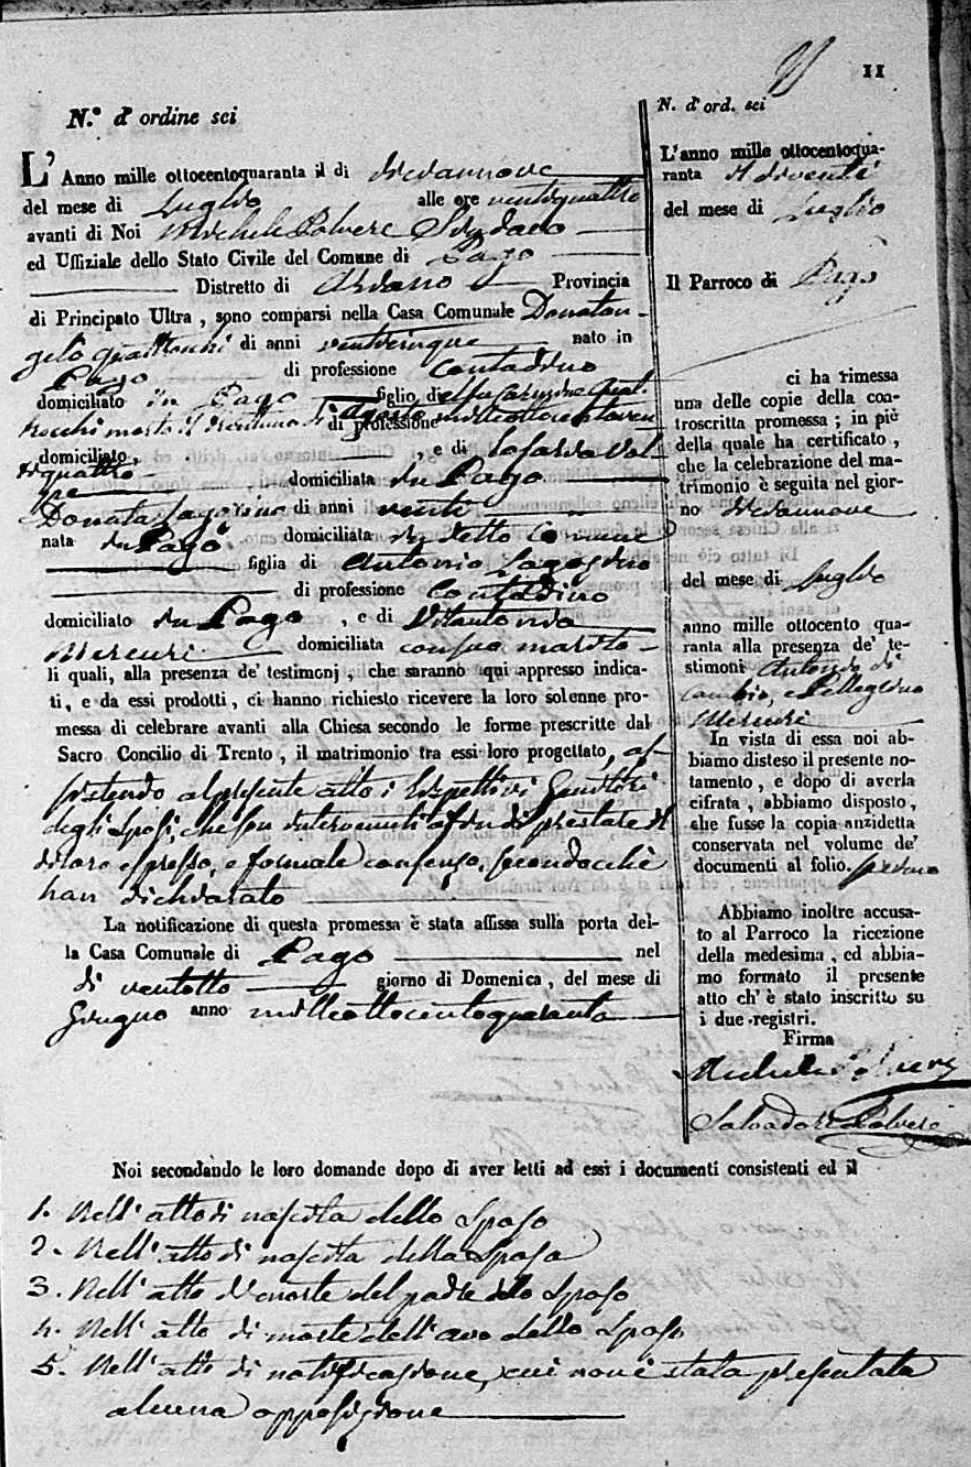 11
N.° d'ordine sei
L'Anno mille ottocentoquaranta il di dieciannove
del mese di Luglio alle ore ventiquattro
avanti di Noi Michele Polvere Sindaco
ed Uffiziale dello Stato Civile del Comune di Pago
Distretto di Ariano Provincia
di Principato Ultra, sono comparsi nella Casa Comunale Donatan-
gelo quattrocchi di anni venticinque nato in
Pago di professione Contadino
domiciliato in Pago figlio di Quat-
trocchi morto il di professione Agosto milleottocentoven
domiciliato, e di Val
tiquattro domiciliata in Pago
pe
Donata Iagozino di anni venti
nata in Pago domiciliata in detto Comune
figlia di Antonio Iagozino
di professione Contadino
domiciliato in Pago, e di Vitantonia
Mercuri domiciliata con suo marito
li quali, alla presenza de' testimonj, che saranno qui appresso indica-
ti, e da essi prodotti, ci hanno richiesto ricevere la loro solenne pro-
messa di celebrare avanti alla Chiesa secondo le forme prescritte dal
Sacro Concilio di Trento, il matrimonio tra essi loro progettato, as-
sistendo al presente atto i rispettivi Genitori
degli Sposi, che son intervenuti a fin di prestare il
di loro espresso, e formale consenso, secondocchè
han dichiarato
La notificazione di questa promessa è stata affissa sulla porta del-
la Casa Comunale di Pago nel
di ventotto giorno di Domenica, del mese di
Giugno anno milleottocentoquaranta
N. d'ord. sei
L'anno mille ottocentoqua-
ranta il diventi
del mese di Luglio
Il Parroco di Pago
ci ha rimessa
una delle copie della con-
troscritta promessa; in piè
della quale ha certificato,
che la celebrazione del ma-
trimonio è seguita nel gior-
no diciannove
del mese di Luglio
anno mille ottocento qua-
ranta alla presenza de' te-
stimoni Antonio di
Cambio, e Pellegrino
Mercuri
In vista di essa noi ab-
biamo disteso il presente no-
tamento, e dopo di averla
cifrata, abbiamo disposto,
che fusse la copia anzidetta
conservata nel volume de'
documenti al folio.
Abbiamo inoltre accusa-
to al Parroco la ricezione
della medesima, ed abbia-
mo formato il presente
atto ch' è stato inscritto su
i due registri.
Firma
Michele Polvere
Salvadore Polvere
Noi secondando le loro domande dopo di aver letti ad essi i documenti consistenti ed il
1. Nell' atto di nascita dello Sposo
2. Nell' atto di nascita della Sposa
3. Nell' atto di morte del padre dello Sposo
4. Nell' atto di morte dell' avo dello Sposo
5. Nell' atto di notificazione, cui non è stata presentata
alcuna opposizione